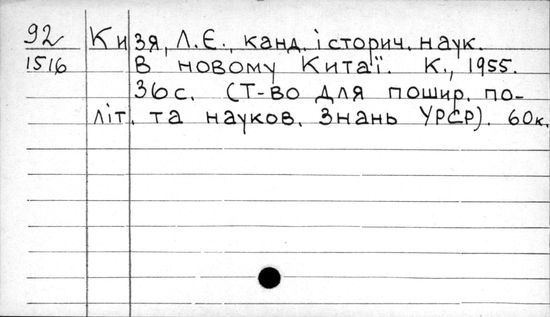 92 Кизя, Л.Є., канд. історич. наук.
1516 В новому Китаї. К., 1955.
36с. (Т-во для пошир. по-
літ. та науков. знань УРСР). 60к.